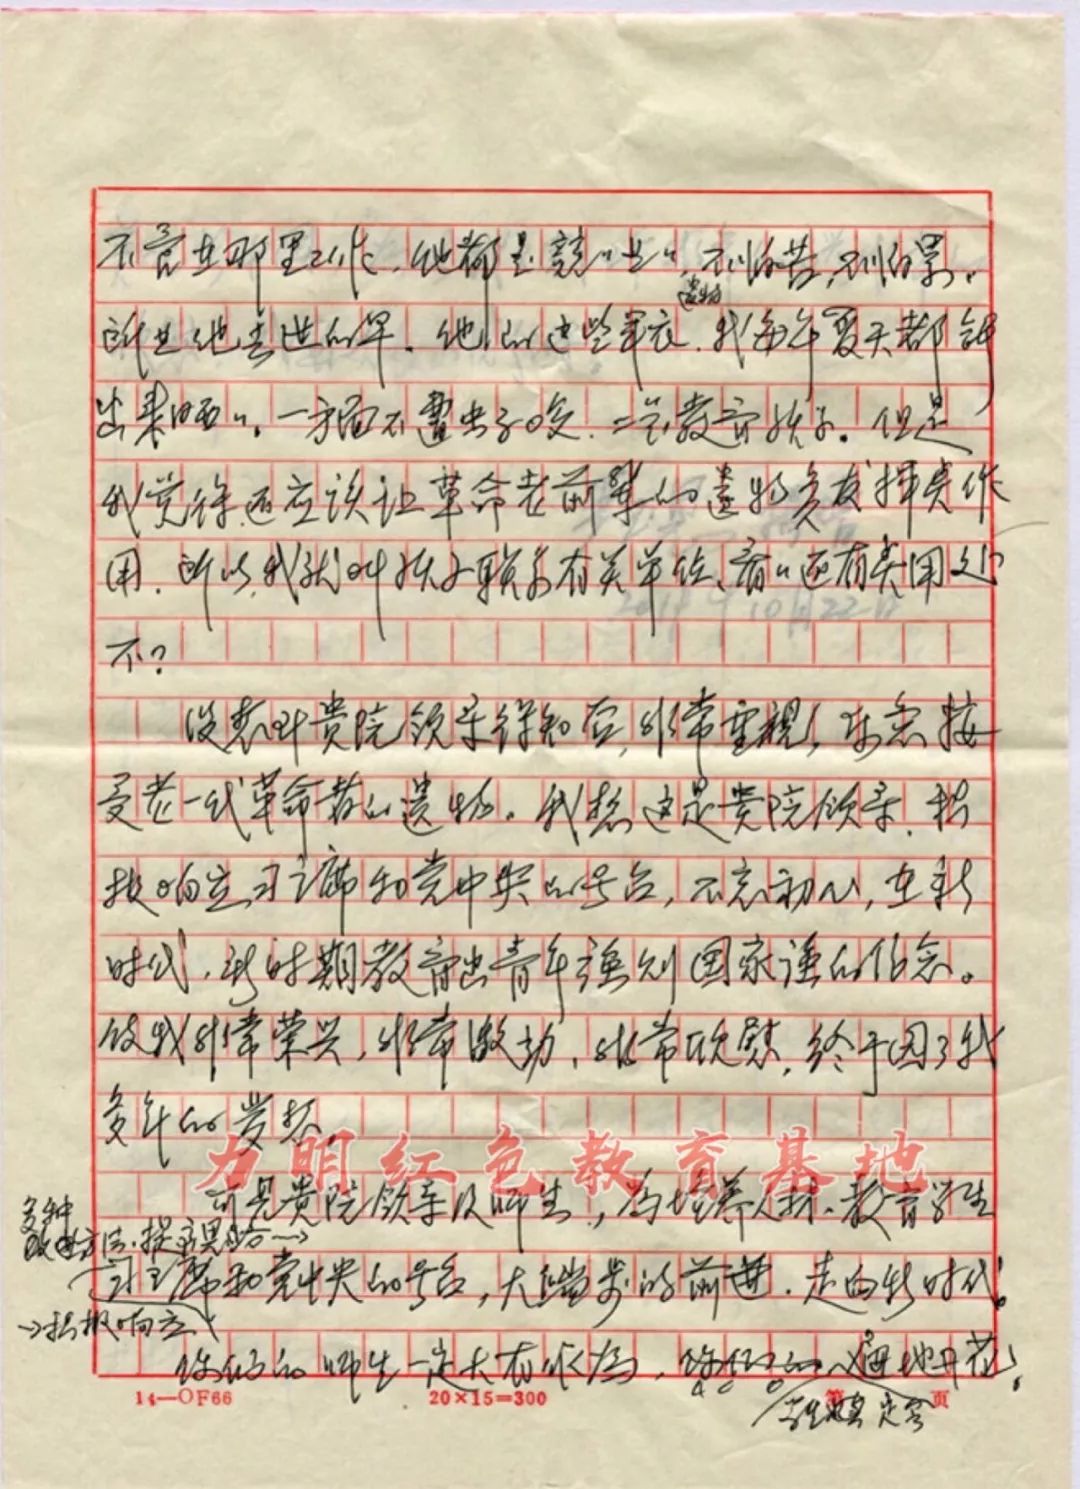 不管在那里工作，他都是兢兢业业，不怕苦，不怕累。
所以他去世的早。他的这些军衣遗物，我每年夏天都拿
出来晒晒。一方面不遭虫子咬，二是教育孩子。但是
我觉得还应该让革命老前辈的遗物多发挥点作
用。所以我就叫孩子联系有关单位，看看还有点用处
不？
没想到贵院领导得知后，非常重视，乐意接
受老一代革命者的遗物。我想这是贵院领导，积
极响应习主席和党中央的号召，不忘初心，在新
时代、新时期教育出青年强则国家强的信念。
使我非常荣兴，非常激动，非常欣慰，终于圆了我
多年的梦想。
力明红色教育基地
可见贵院领导及师生，为培养人材、教育学生
多种
改进方法，提高
→积极响应
习主席和党中央的号召，大踏步的前进，走向新时代。
你们的师生一定大有作为，你们的 遍地开花！
14—OF66 20×15=300 第 页
学生 一定会
2018年10月22日